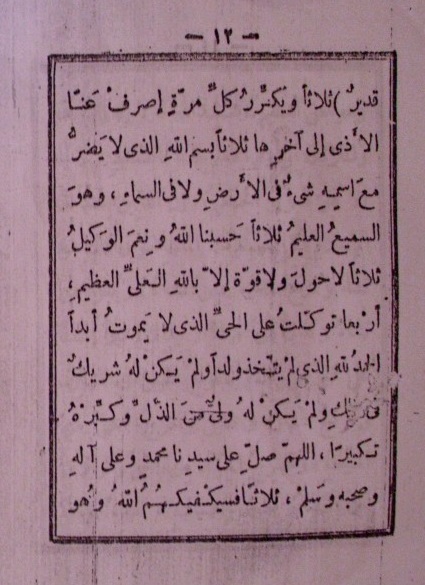 — ١٢ —
قديرٌ ) ثلاثاً ويكرِّرُ كلَّ مرّةٍ إصرفْ عَنـّا
الأَذى إلى آخرِها ثلاثاً بسم اللهِ الذى لا يَضرُّ
معَ اسمِهِ شىءٌ فى الأَرضِ ولا فى السماءِ ، وهوَ
السميعُ العليمُ ثلاثاً حَسبنا اللهُ و نِعمَ الوَكيلُ
ثلاثاً لاحولَ ولا قوّة إلاّ باللهِ العَلىِّ العظيمِ ،
أرْبعا توكّلتُ على الحىِّ الذى لا يَموتُ أبداً
الحمدُ للهِ الذى لمْ يتّخذ ولداً ولمْ يَكنْ لهُ شريكٌ
فى الملكِ ولمْ يَكنْ لهُ ولىٌّ منَ الذّلِّ وكبّرْهُ
تكبيرًا ، اللهمّ صلِّ على سيدِنا محمدٍ وعلى آلهِ
وصحبه وَسلمْ ، ثلاثًا فسيكفيكهُمُ اللهُ وُهو